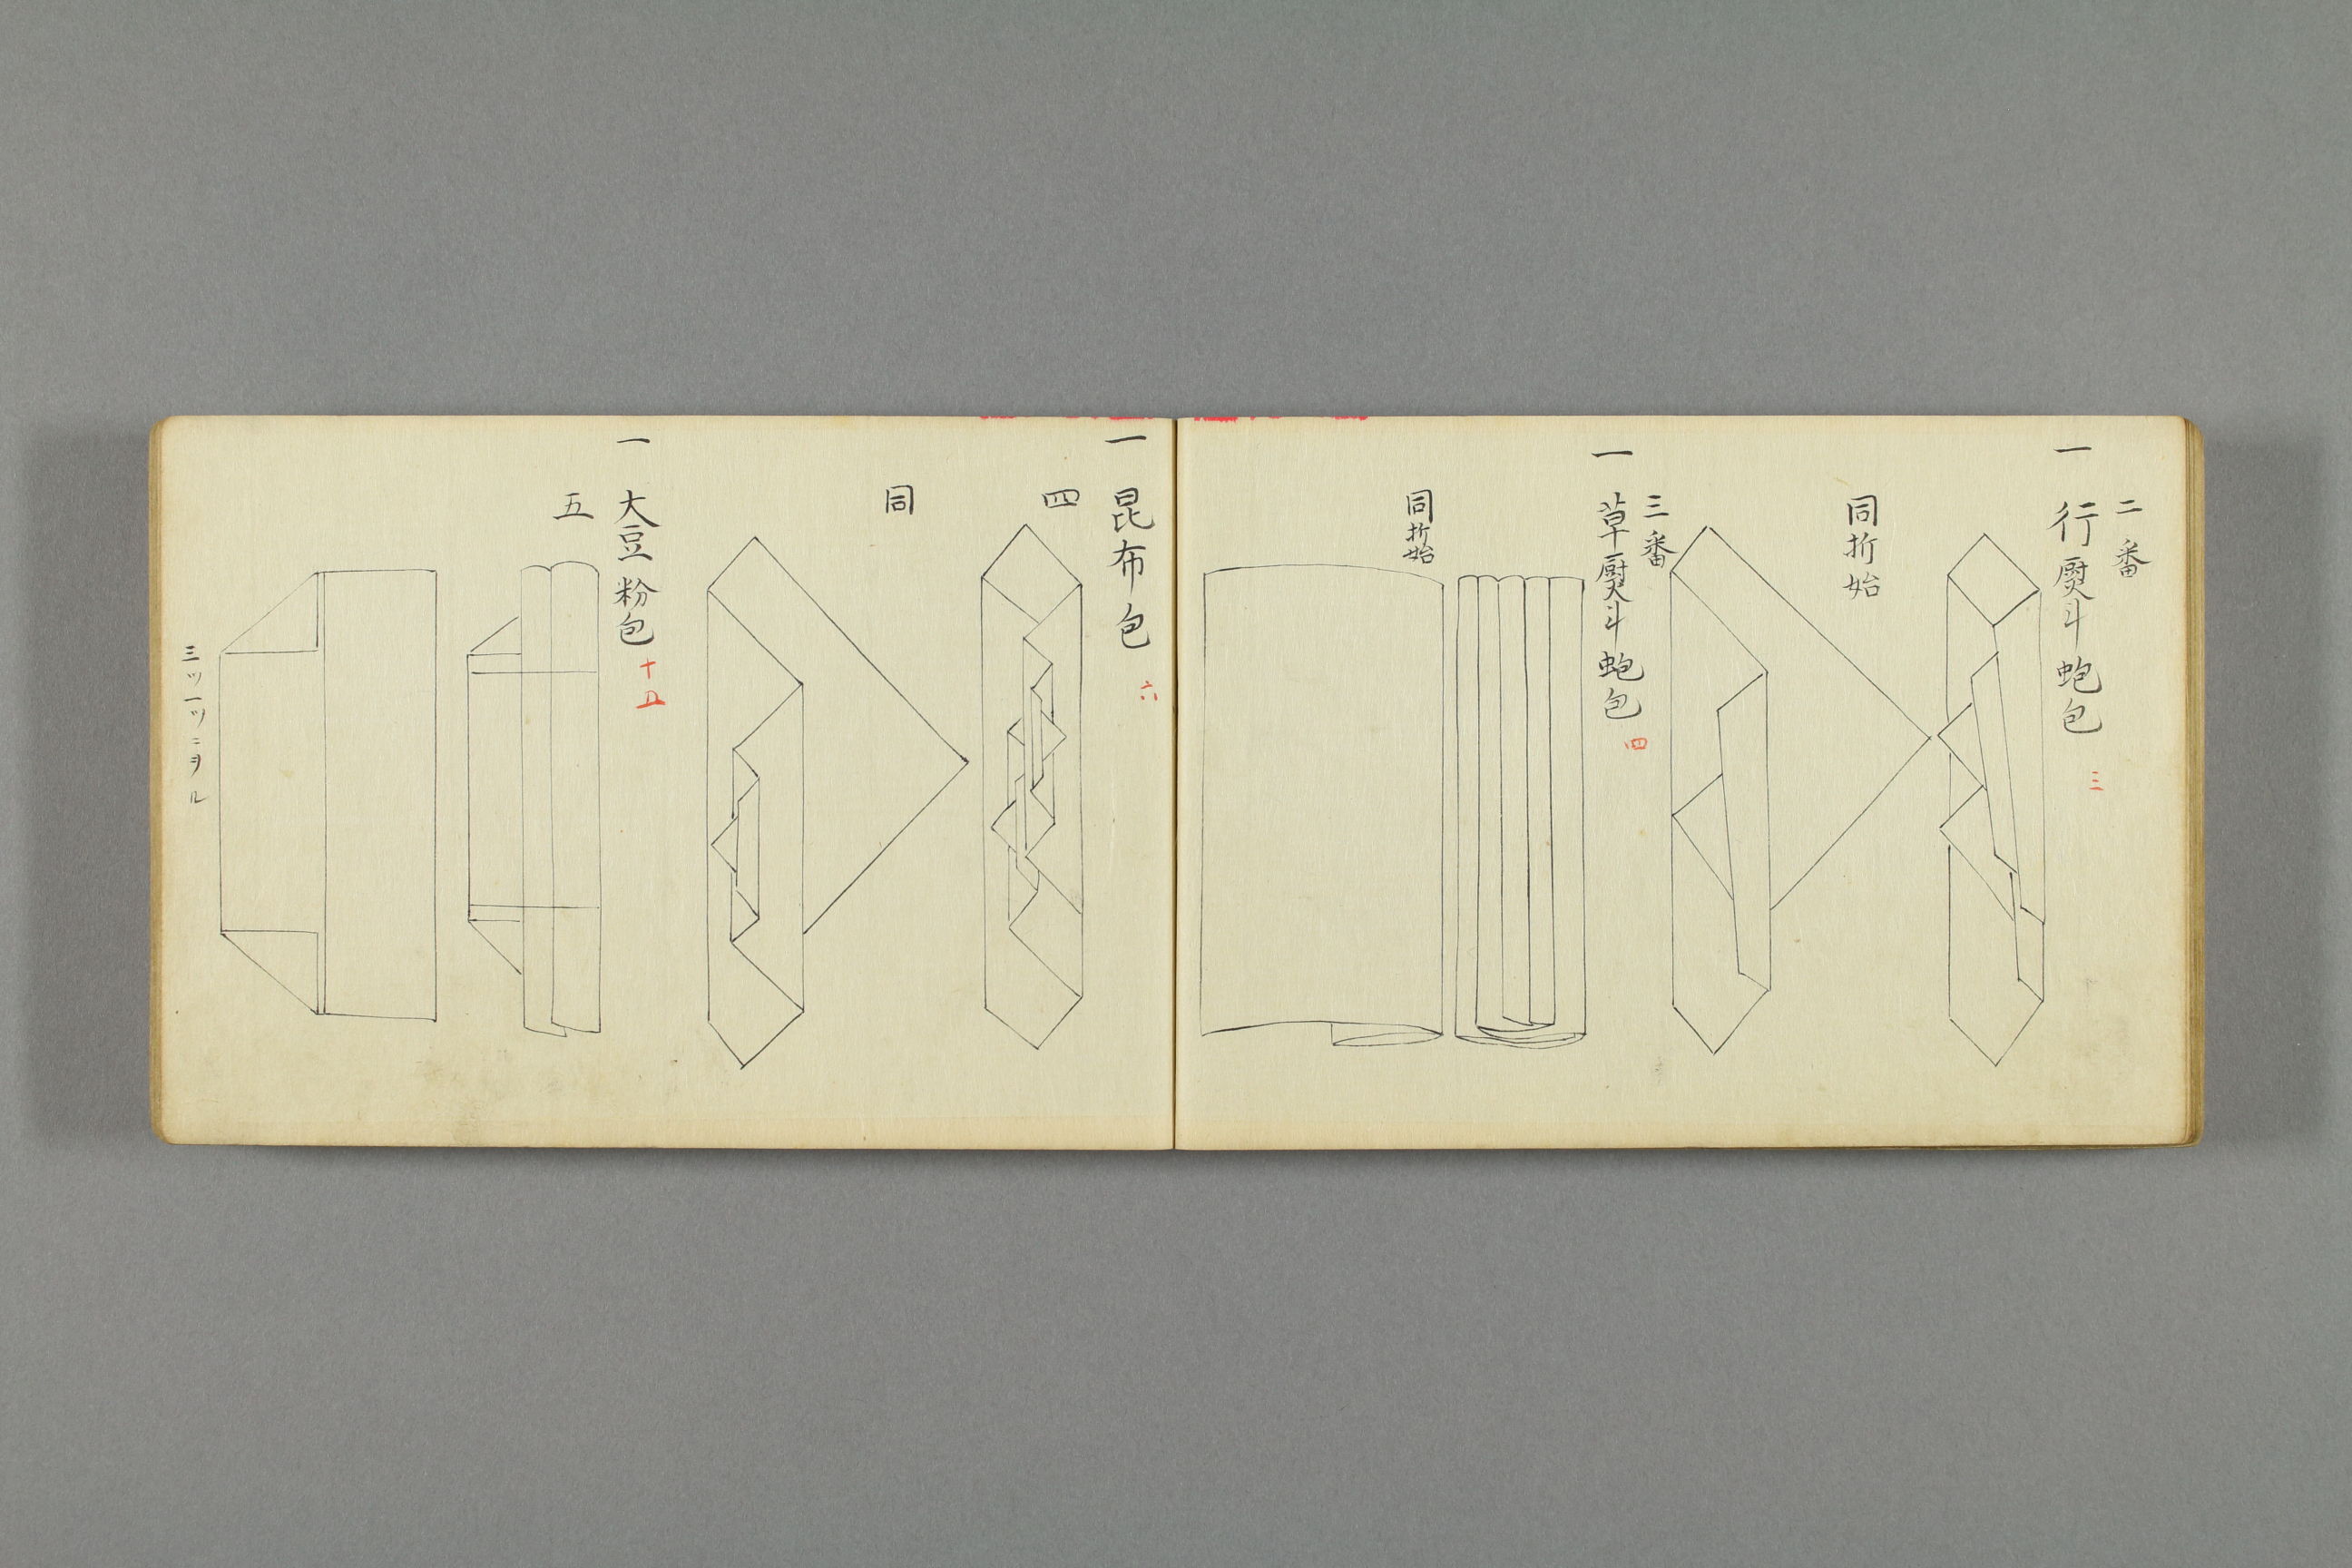 二番
一 行熨斗蚫包 三
同折始
三番
一 草熨斗蚫包 四
同折始
一 昆布包 六
四
同
一 大豆粉包 十五
五
三ツ一ツニヲル